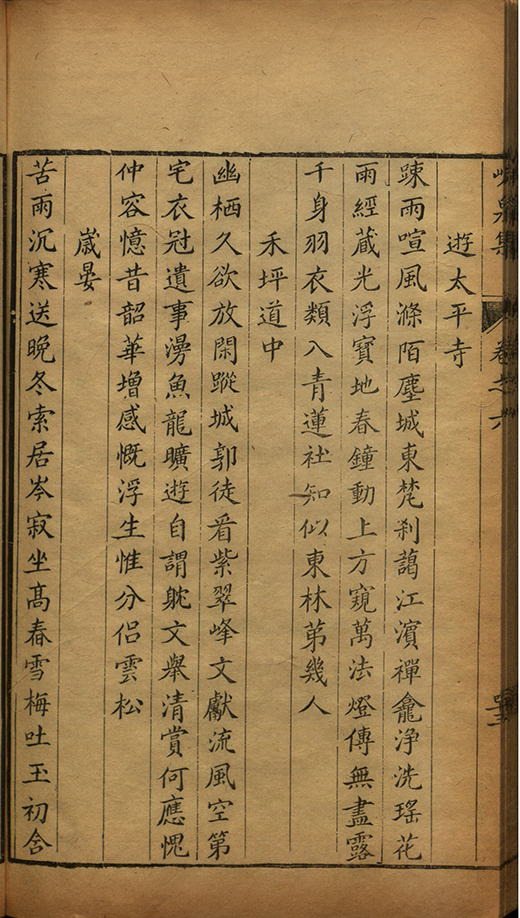 峴泉集 卷之六
遊太平寺
踈雨喧風滌陌塵城東梵刹藹江濱禪龕浄洗瑤花
雨經蔵光浮寶地春鐘動上方窺萬法燈傳無盡露
千身羽衣類入青蓮社知似東林第幾人
禾坪道中
幽栖久欲放閑蹤城郭徒看紫翠峰文獻流風空第
宅衣冠遺事漫魚龍曠遊自謂躭文舉清賞何應愧
仲容憶昔韶華增感慨浮生惟分侶雲松
嵗晏
苦雨沉寒送晚冬索居岑寂坐高春雪梅吐玉初含